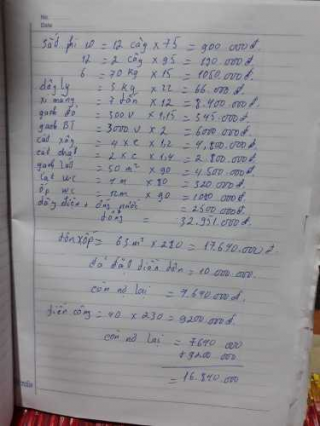 No:
Date:
Sắt phi 10 = 12 cây × 75 = 900.000đ.
12 = 2 cây × 95 = 190.000đ.
6 = 70 kg × 15 = 1050.000đ.
= 3 kg × 22 = 66.000đ.
xi măng = 7 × 12 = 8.400.000đ.
gạch đỏ = 300 V × 1,15 = 345.000đ.
gạch BT = 3000 V × 2 = 6000.000đ.
cát xây = 4 × × 1,2 = 4,800.000đ.
cát = 2 × × 1,4 = 2.800.000đ.
gạch = 50 m² × 90 = 4.500.000đ.
wc = 4 m × 80 = 320.000đ
ốp wc = 12m × 90 = 1080.000đ
dây điện + ống nước = 2500.000đ.
= 32.951.000đ.
tôn xốp = 63 m² × 280 = 17.640.000đ
= 10.000.000đ.
còn nợ lại = 7.640.000đ.
tiền công = 40 × 230 = 9200.000đ.
còn nợ lại = 7640 000
+ 9200.000
= 16.840.000